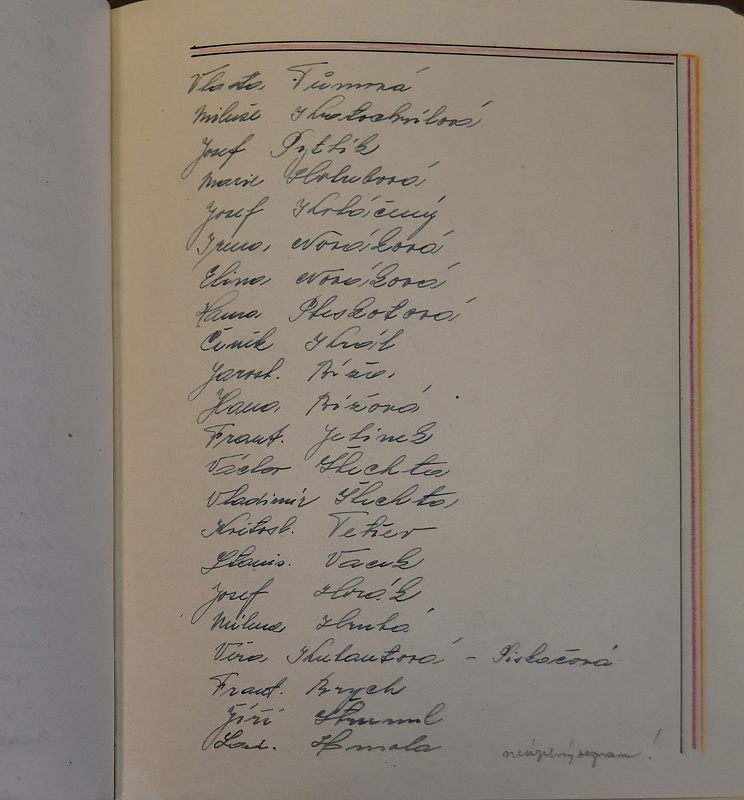 Vlasta Tůmová
Miluše Khestochvílová
Josef Pytlík
Marie Holubová
Josef Kotáčený
Irena Nováková
Elina Nováková
Hana Pleskotová
Čeněk Král
Jarosl. Bíža
Hana Bížová
Frant. Jelínek
Václav Šlechta
Vladimír Šlechta
Květosl. Tetřev
Stanis. Vacek
Josef Horák
Milena Hrubá
Věra Kulautová - Pisločová
Frant. Brych
Jiří
Lad. Hmola
neúplný seznam!